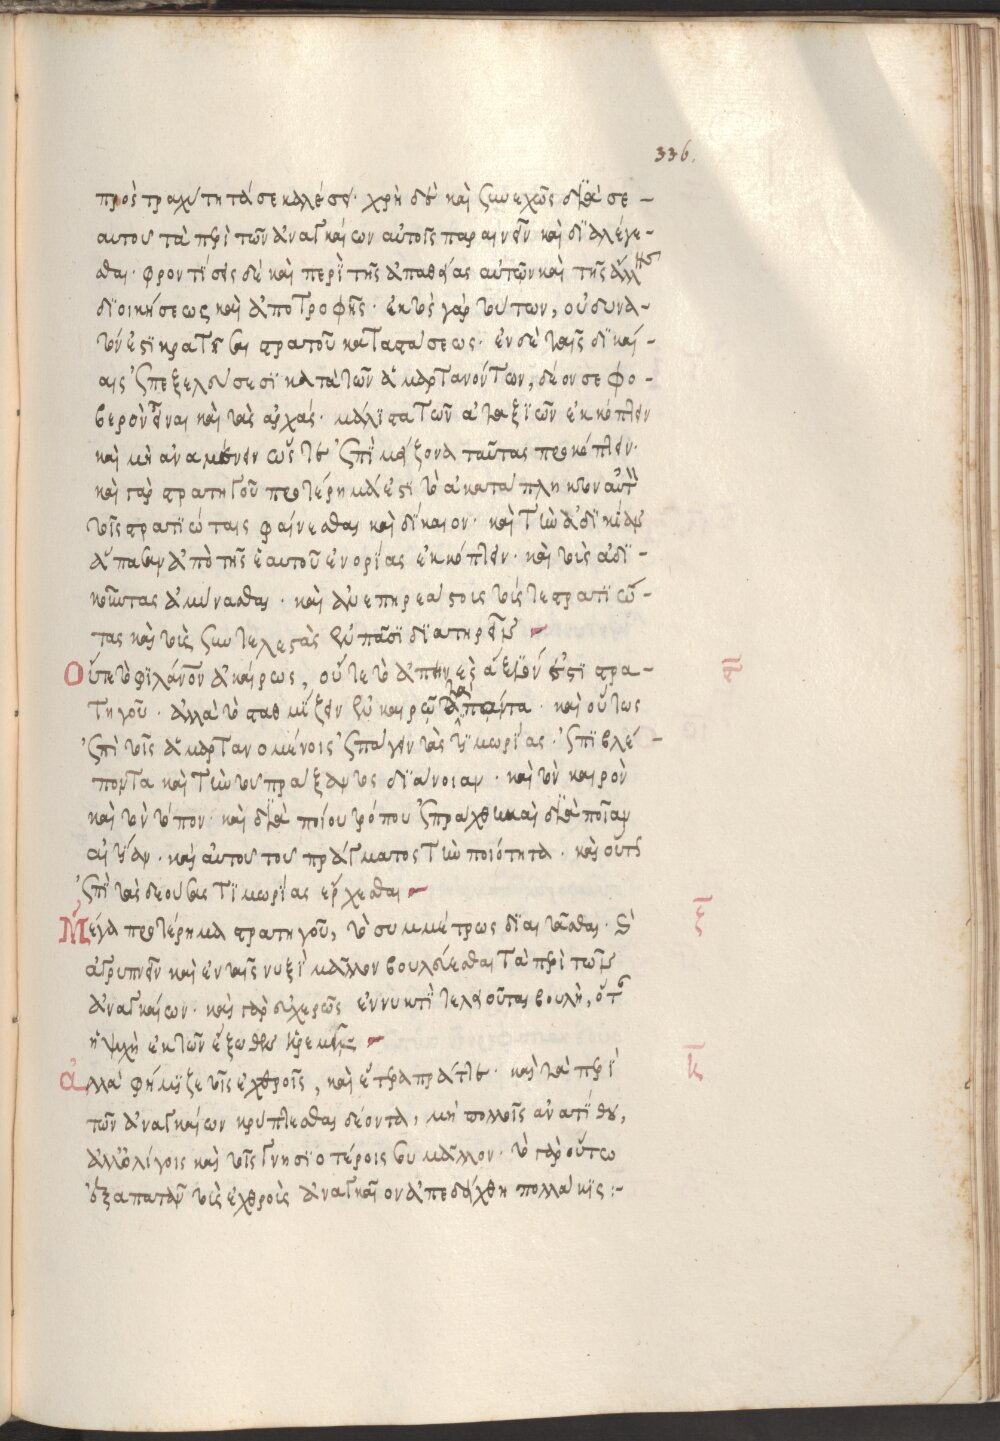 336.
πρὸς τραχύτητά σε καλέσει· χρὴ δὲ καὶ συνεχῶς διὰ σε-
αυτοῦ τὰ περὶ τῶν ἀναγκαίων αὐτοῖς παραινεῖν καὶ διαλέγε-
σθαι· φροντίσεις δὲ καὶ περὶ τῆς ἀπαθείας αὐτῶν καὶ τῆς ἄλλης
διοικήσεως καὶ ἀποτροφῆς· ἐκτὸς γὰρ τούτων, οὐ δυνα-
τόν ἐστι κρατῆσαι στρατοῦ καταστάσεως· ἐν δὲ ταῖς δικαί-
αις ἐπεξελεύσεσι κατὰ τῶν ἁμαρτανόντων, δέον σε φο-
βερὸν εἶναι καὶ τὰς ἀρχάς· μάλιστα τῶν ἀταξιῶν ἐκκόπτειν
καὶ μὴ ἀναμένειν ὥστε ἐπὶ μείζονα ταύτας προκόπτειν·
καὶ γὰρ στρατηγοῦ προτέρημά ἐστι τὸ ἀκατάπληκτον αὐτὸν
τοῖς στρατιώταις φαίνεσθαι καὶ δίκαιον· καὶ τὴν ἀδικίαν
ἅπασαν ἀπὸ τῆς ἑαυτοῦ ἐνορίας ἐκκόπτειν· καὶ τοὺς ἀδι-
κοῦντας ἀμύνασθαι· καὶ ἀνεπηρεάστους τούς τε στρατιώ-
τας καὶ τοὺς συντελεστὰς ἐν πᾶσι διατηρεῖν
Οὔτε τὸ φιλάνθρωπον ἀκαίρως, οὔτε τὸ ἀπηνὲς ἄξιόν ἐστι στρα-
τηγοῦ· ἀλλὰ τὸ σταθμίζειν ἐν καιρῷ τὰ ἅπαντα· καὶ οὕτως
ἐπὶ τοῖς ἁμαρτανομένοις ἐπάγειν τὰς τιμωρίας· ἐπιβλέ-
ποντα καὶ τὴν τοῦ πράξαντος διάνοιαν· καὶ τὸν καιρὸν
καὶ τὸν τόπον· καὶ διὰ ποίου τρόπου ἐπράχθη καὶ διὰ ποίαν
αἰτίαν· καὶ αὐτοῦ τοῦ πράγματος τὴν ποιότητα· καὶ οὕτως
ἐπὶ τὰς δεούσας τιμωρίας ἔρχεσθαι
Μέγα προτέρημα στρατηγοῦ, τὸ συμμέτρως διαιτᾶσθαι· καὶ
ἀγρυπνεῖν καὶ ἐν ταῖς νυξὶ μᾶλλον βουλεύεσθαι τὰ περὶ τῶν
ἀναγκαίων· καὶ γὰρ εὐχερῶς ἐν νυκτὶ τελειοῦται βουλὴ, ὅτε
ἡ ψυχὴ ἐκ τῶν ἔξωθεν ἠρεμεῖ
ἄλλα φήμιζε τοῖς ἐχθροῖς, καὶ ἕτερα πρᾶττε· καὶ τὰ περὶ
τῶν ἀναγκαίων κρύπτεσθαι δέοντα, μὴ πολλοῖς ἀνατίθου,
ἀλλ' ὀλίγοις καὶ τοῖς γνησιωτέροις σου μᾶλλον· τὸ γὰρ οὕτω
ἐξαπατᾶν τοὺς ἐχθροὺς ἀναγκαῖον ἀπεδείχθη πολλάκις :-